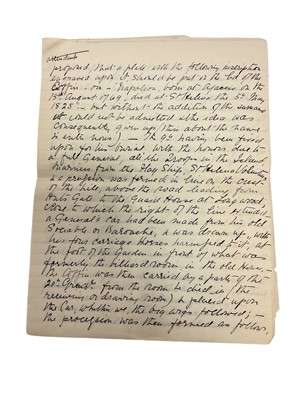 attendants
proposed, that a plate with the following inscription
engraved upon it should be put on the lid of the
Coffin - on - Napoleon born at Ajaccio on the
15th August 1769, died at St Helena the 5th May
182 - but without the addition of the surname
it could not be admitted & the idea was
consequently given up (
) - the
having been fixed
upon for his burial, with the honours due to
a full General, all the Troops in the Island
Marines from the Flag Ship, St Helena Volunteers
&
was formed in line on the crest
of the hill, above the road leading from
Huts Gate to the Guard House at Longwood,
close to which the right of the line extended
a General's car had been made from his old
Sociable or Barouche, & was drawn up, with
his four carriage horses harnessed to it, at
the foot of the Garden in front of what was
formerly the billiard room in the old House,
the Coffin was then carried by a party of the
20th Grends. from the room he died in (the
receiving or drawing room) & placed upon
the Car, whilst we, the big wigs followed; -
the procession was then formed as follows.